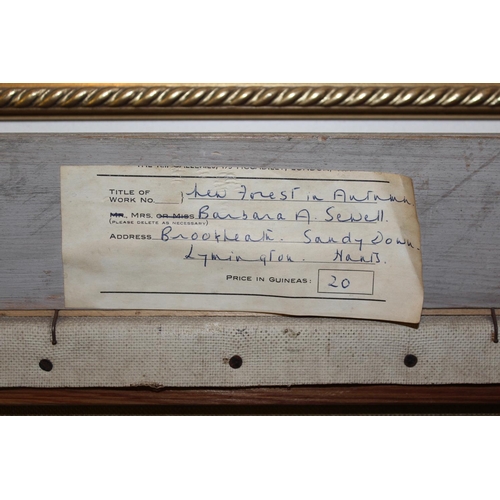 TITLE OF
WORK NO. 1 New Forest in Autumn
MR. MRS. OR MISS Barbara A. Sewell.
(PLEASE DELETE AS NECESSARY)
ADDRESS Brookheath. Sandy Down.
Lymington. Hants.
PRICE IN GUINEAS: 20